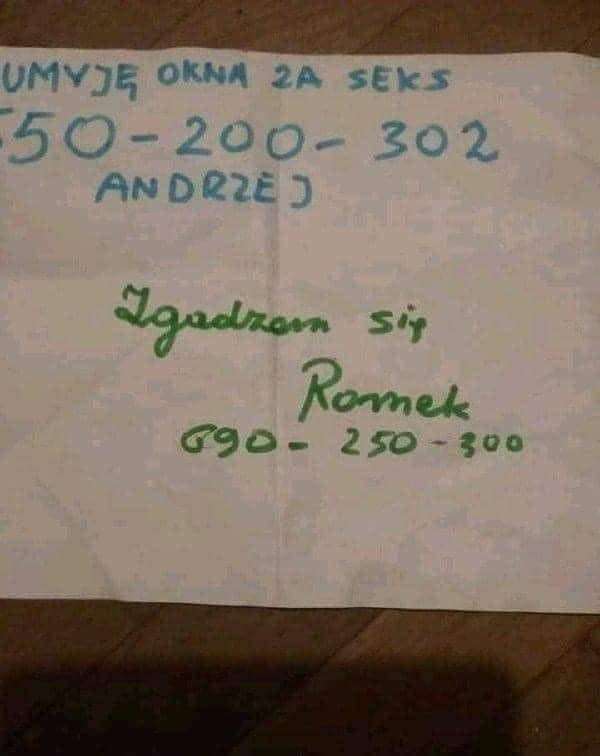 UMYJĘ OKNA ZA SEKS
50-200-302
ANDRZEJ
Zgadzam się
Romek
690-250-300